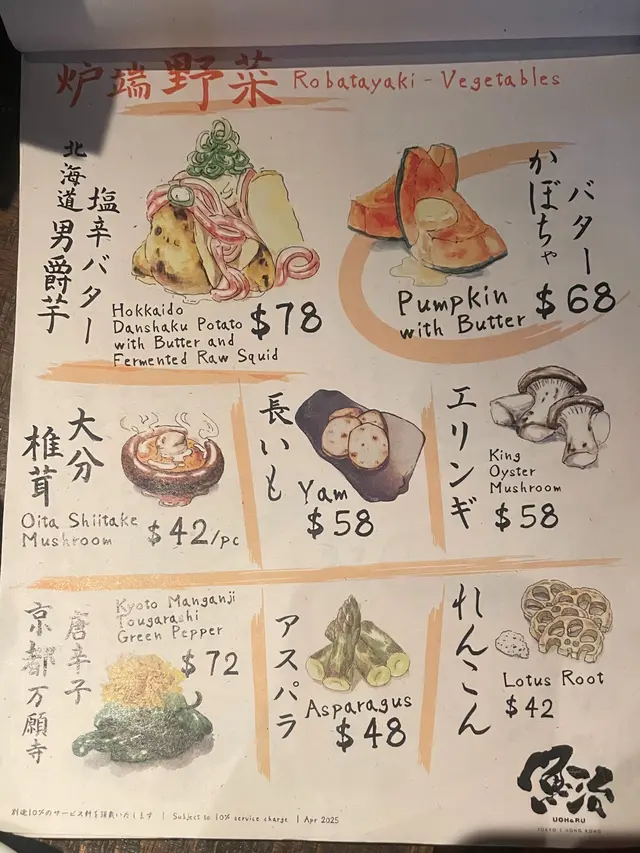 炉端野菜 Robatayaki - Vegetables
北海道男爵芋
塩辛バター
Hokkaido
Danshaku Potato
with Butter and
Fermented Raw Squid
$78
かぼちゃ
バター
Pumpkin
with Butter
$68
大分
椎茸
Oita Shiitake
Mushroom
$42/pc
長いも
Yam
$58
エリンギ
King
Oyster
Mushroom
$58
京都万願寺
唐辛子
Kyoto Manganji
Tougarashi
Green Pepper
$72
アスパラ
Asparagus
$48
れんこん
Lotus Root
$42
別途10%のサービス料を頂戴いたします | Subject to 10% service charge | Apr 2025
魚治
UOHARU
TOKYO | HONG KONG